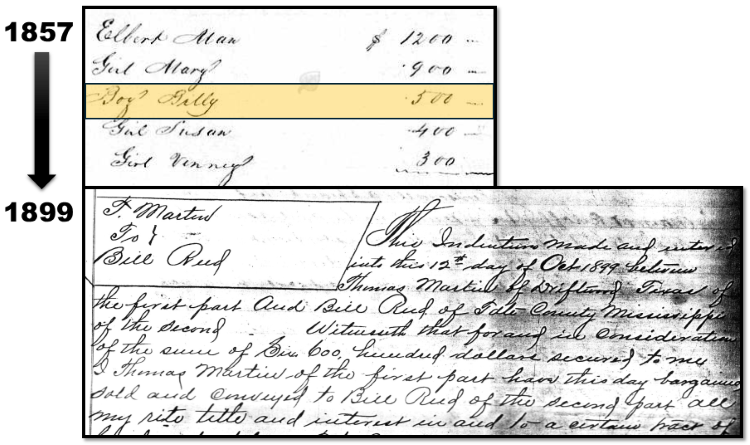 1857
Elbert Man $ 1200
Girl Mary 900
Boy Billy 500
Girl Susan 400
Girl Vinney 300
1899
T. Martin
To
Bill Reed
This Indenture made and entered
into this 12th day of Oct 1899 between
Thomas Martin of Driftwood Texas of
the first part And Bill Reed of Tate County Mississippi
of the second Witnesseth that for and in consideration
of the sum of Six 600, hundred dollars secured to me
I Thomas Martin of the first part have this day bargained
sold and conveyed to Bill Reed of the second part all
my rite title and interest in and to a certain tract of